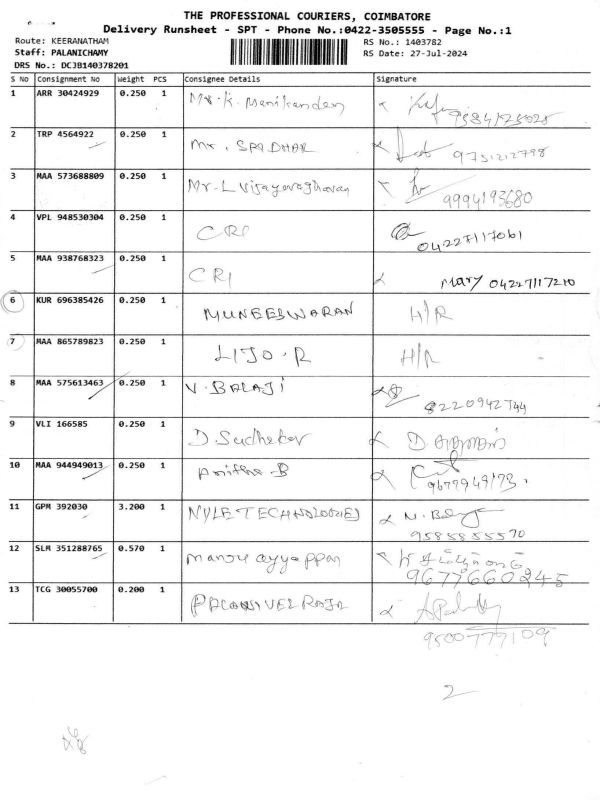 THE PROFESSIONAL COURIERS, COIMBATORE
Delivery Runsheet - SPT - Phone No.:0422-3505555 - Page No.:1
Route: KEERANATHAM RS No.: 1403782
Staff: PALANICHAMY RS Date: 27-Jul-2024
DRS No.: DCJB140378201
S No Consignment No Weight PCS Consignee Details Signature
1 ARR 30424929 0.250 1 Mr. K. Manikanden
2 TRP 4564922 0.250 1 Mr. SRIDHAR 9751212798
3 MAA 573688809 0.250 1 Mr. L Vijayaraghavan 9994193680
4 VPL 948530304 0.250 1 CRI 04227117061
5 MAA 938768323 0.250 1 CRI Mary 04227117210
6 KUR 696385426 0.250 1 MUNEESWARAN H/R
7 MAA 865789823 0.250 1 LIJO.R H/R
8 MAA 575613463 0.250 1 V.BALAJI 8220942744
9 VLI 166585 0.250 1 D.Sudhakar D
10 MAA 944949013 0.250 1 Anitha.B 9677949173
11 GPM 392030 3.200 1 NYLE TECHNOLOGIES N.
9585855570
12 SLM 351288765 0.570 1 manou ayyappan
9677660245
13 TCG 30055700 0.200 1 PALANIVEL RAJA
9500777109
2